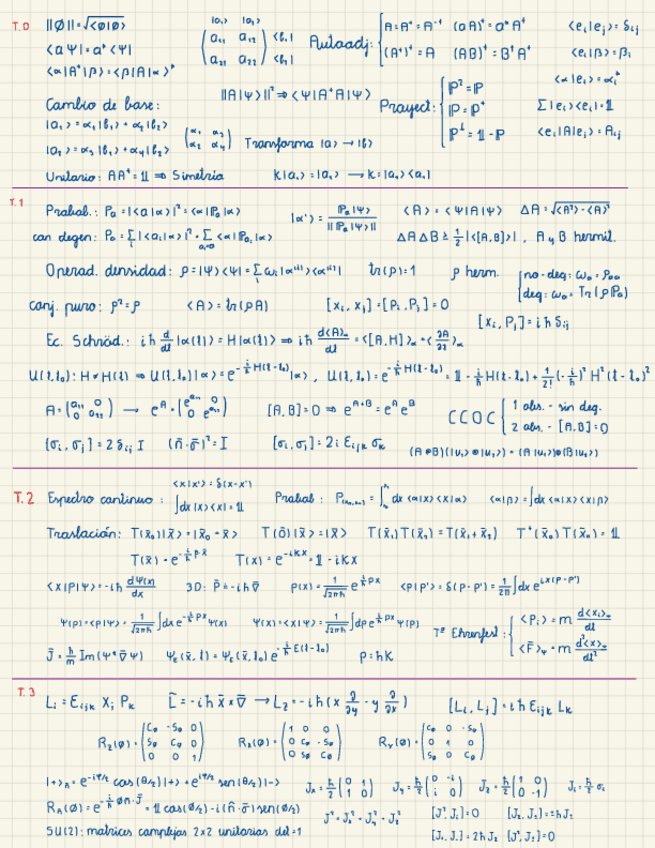 T.0 ||Ø|| = √<Ø|Ø>
<aΨ| = a* <Ψ|
<α|A⁺|β> = <β|A|α>*
|a₁> |a₂>
( a₁₁ a₁₂ ; a₂₁ a₂₂ ) <b₁| <b₂|
Autoadj: { A = A⁺ = A⁻¹ (aA)⁺ = a* A⁺
(A⁺)⁺ = A (AB)⁺ = B⁺A⁺
<eᵢ|eⱼ> = δᵢⱼ
<eᵢ|β> = βᵢ
<α|eᵢ> = αᵢ*
Σ|eᵢ><eᵢ| = 𝟙
<eᵢ|A|eⱼ> = Aᵢⱼ
||A|Ψ>||² ⇒ <Ψ|A⁺A|Ψ>
Proyect: { ℙ² = ℙ
ℙ = ℙ⁺
ℙ^⊥ = 𝟙 - ℙ
Cambio de base:
|a₁> = α₁|b₁> + α₂|b₂>
|a₂> = α₃|b₁> + α₄|b₂> ( α₁ α₃ ; α₂ α₄ ) Transforma |a> → |b>
Unitario: AA⁺ = 𝟙 ⇒ Simetría K|a₁> = |a₂> → K = |a₂><a₁|
T.1 Probab.: Pₐ = |<a|α>|² = <α|ℙₐ|α> |α'> = ℙₐ|Ψ> / ||ℙₐ|Ψ>|| <A> = <Ψ|A|Ψ> ΔA = √<A²> - <A>²
con degen: Pₐ = Σ|<aᵢ|α>|² = Σ <α|ℙₐᵢ|α> ΔAΔB ≥ ½|<[A,B]>|, A y B hermit.
Operad. densidad: ρ = |Ψ><Ψ| = Σ ωᵢ|α⁽ⁱ⁾><α⁽ⁱ⁾| tr(ρ) = 1 ρ herm. { no-deg: ωₐ = ρₐₐ
deg: ωₐ = Tr(ρℙₐ)
conj. puro: ρ² = ρ <A> = tr(ρA) [xᵢ, xⱼ] = [Pᵢ, Pⱼ] = 0
[xᵢ, Pⱼ] = iħ δᵢⱼ
Ec. Schröd.: iħ d/dt |α(t)> = H|α(t)> ⇒ iħ d<A>α/dt = <[A,H]>α + <∂A/∂t>α
U(t,t₀): H ≠ H(t) ⇒ U(t,t₀)|α> = e^{-i/ħ H(t-t₀)}|α>, U(t,t₀) = e^{-i/ħ H(t-t₀)} = 𝟙 - i/ħ H(t-t₀) + 1/2! (-i/ħ)² H²(t-t₀)²
A = ( a₁₁ 0 ; 0 a₂₂ ) → e^A = ( e^{a₁₁} 0 ; 0 e^{a₂₂} ) [A,B] = 0 ⇒ e^{A+B} = e^A e^B CCOC { 1 obs. - sin deg.
2 obs. - [A,B] = 0
{σᵢ, σⱼ} = 2δᵢⱼ I (n̄·σ̄)² = I [σᵢ, σⱼ] = 2i εᵢⱼₖ σₖ (A⊗B)(|u₁>⊗|u₂>) = (A|u₁>)⊗(B|u₂>)
T.2 Espectro continuo: <x|x'> = δ(x-x')
∫dx |x><x| = 𝟙 Probab: P = ∫ dx <α|x><x|α> <α|β> = ∫dx <α|x><x|β>
Traslación: T(x̄₀)|x̄> = |x̄₀ + x̄> T(ō)|x̄> = |x̄> T(x̄₁)T(x̄₂) = T(x̄₁+x̄₂) T⁺(x̄₀)T(x̄₀) = 𝟙
T(x̄) = e^{-i/ħ p̄x̄} T(x) = e^{-iKx} = 𝟙 - iKx
<x|P|Ψ> = -iħ dΨ(x)/dx 3D: P̄ = -iħ∇̄ p(x) = 1/√2πħ e^{i/ħ px} <p|p'> = δ(p-p') = 1/2π ∫dx e^{ix(p-p')}
Ψ(p) = <p|Ψ> = 1/√2πħ ∫dx e^{-i/ħ px} Ψ(x) Ψ(x) = <x|Ψ> = 1/√2πħ ∫dp e^{i/ħ px} Ψ(p) Tª Ehrenfest: { <Pᵢ> = m d<xᵢ>/dt
<F̄>Ψ = m d²<x>/dt²
J̄ = ħ/m Im(Ψ*∇̄Ψ) Ψ_E(x̄,t) = Ψ_E(x̄,t₀) e^{-i/ħ E(t-t₀)} p = ħK
T.3 Lᵢ = εᵢⱼₖ xⱼ Pₖ L̄ = -iħ x̄ × ∇̄ → L_z = -iħ(x ∂/∂y - y ∂/∂x) [Lᵢ, Lⱼ] = iħ εᵢⱼₖ Lₖ
R_z(Ø) = ( cø -sø 0 ; sø cø 0 ; 0 0 1 ) Rₓ(Ø) = ( 1 0 0 ; 0 cø -sø ; 0 sø cø ) R_y(Ø) = ( cø 0 -sø ; 0 1 0 ; sø 0 cø )
|+>ₙ = e^{-iφ/2} cos(θ/2)|+> + e^{iφ/2} sen(θ/2)|-> Jₓ = ħ/2 ( 0 1 ; 1 0 ) J_y = ħ/2 ( 0 -i ; i 0 ) J_z = ħ/2 ( 1 0 ; 0 -1 ) Jᵢ = ħ/2 σᵢ
Rₙ(Ø) = e^{-i/ħ Ø n̄·J̄} = 𝟙 cos(Ø/2) - i(n̄·σ̄) sen(Ø/2) J² = Jₓ² + J_y² + J_z² [J², Jᵢ] = 0 [J_z, J±] = ±ħJ±
SU(2): matrices complejas 2x2 unitarias det = 1 [J₊, J₋] = 2ħJ_z [J², J±] = 0